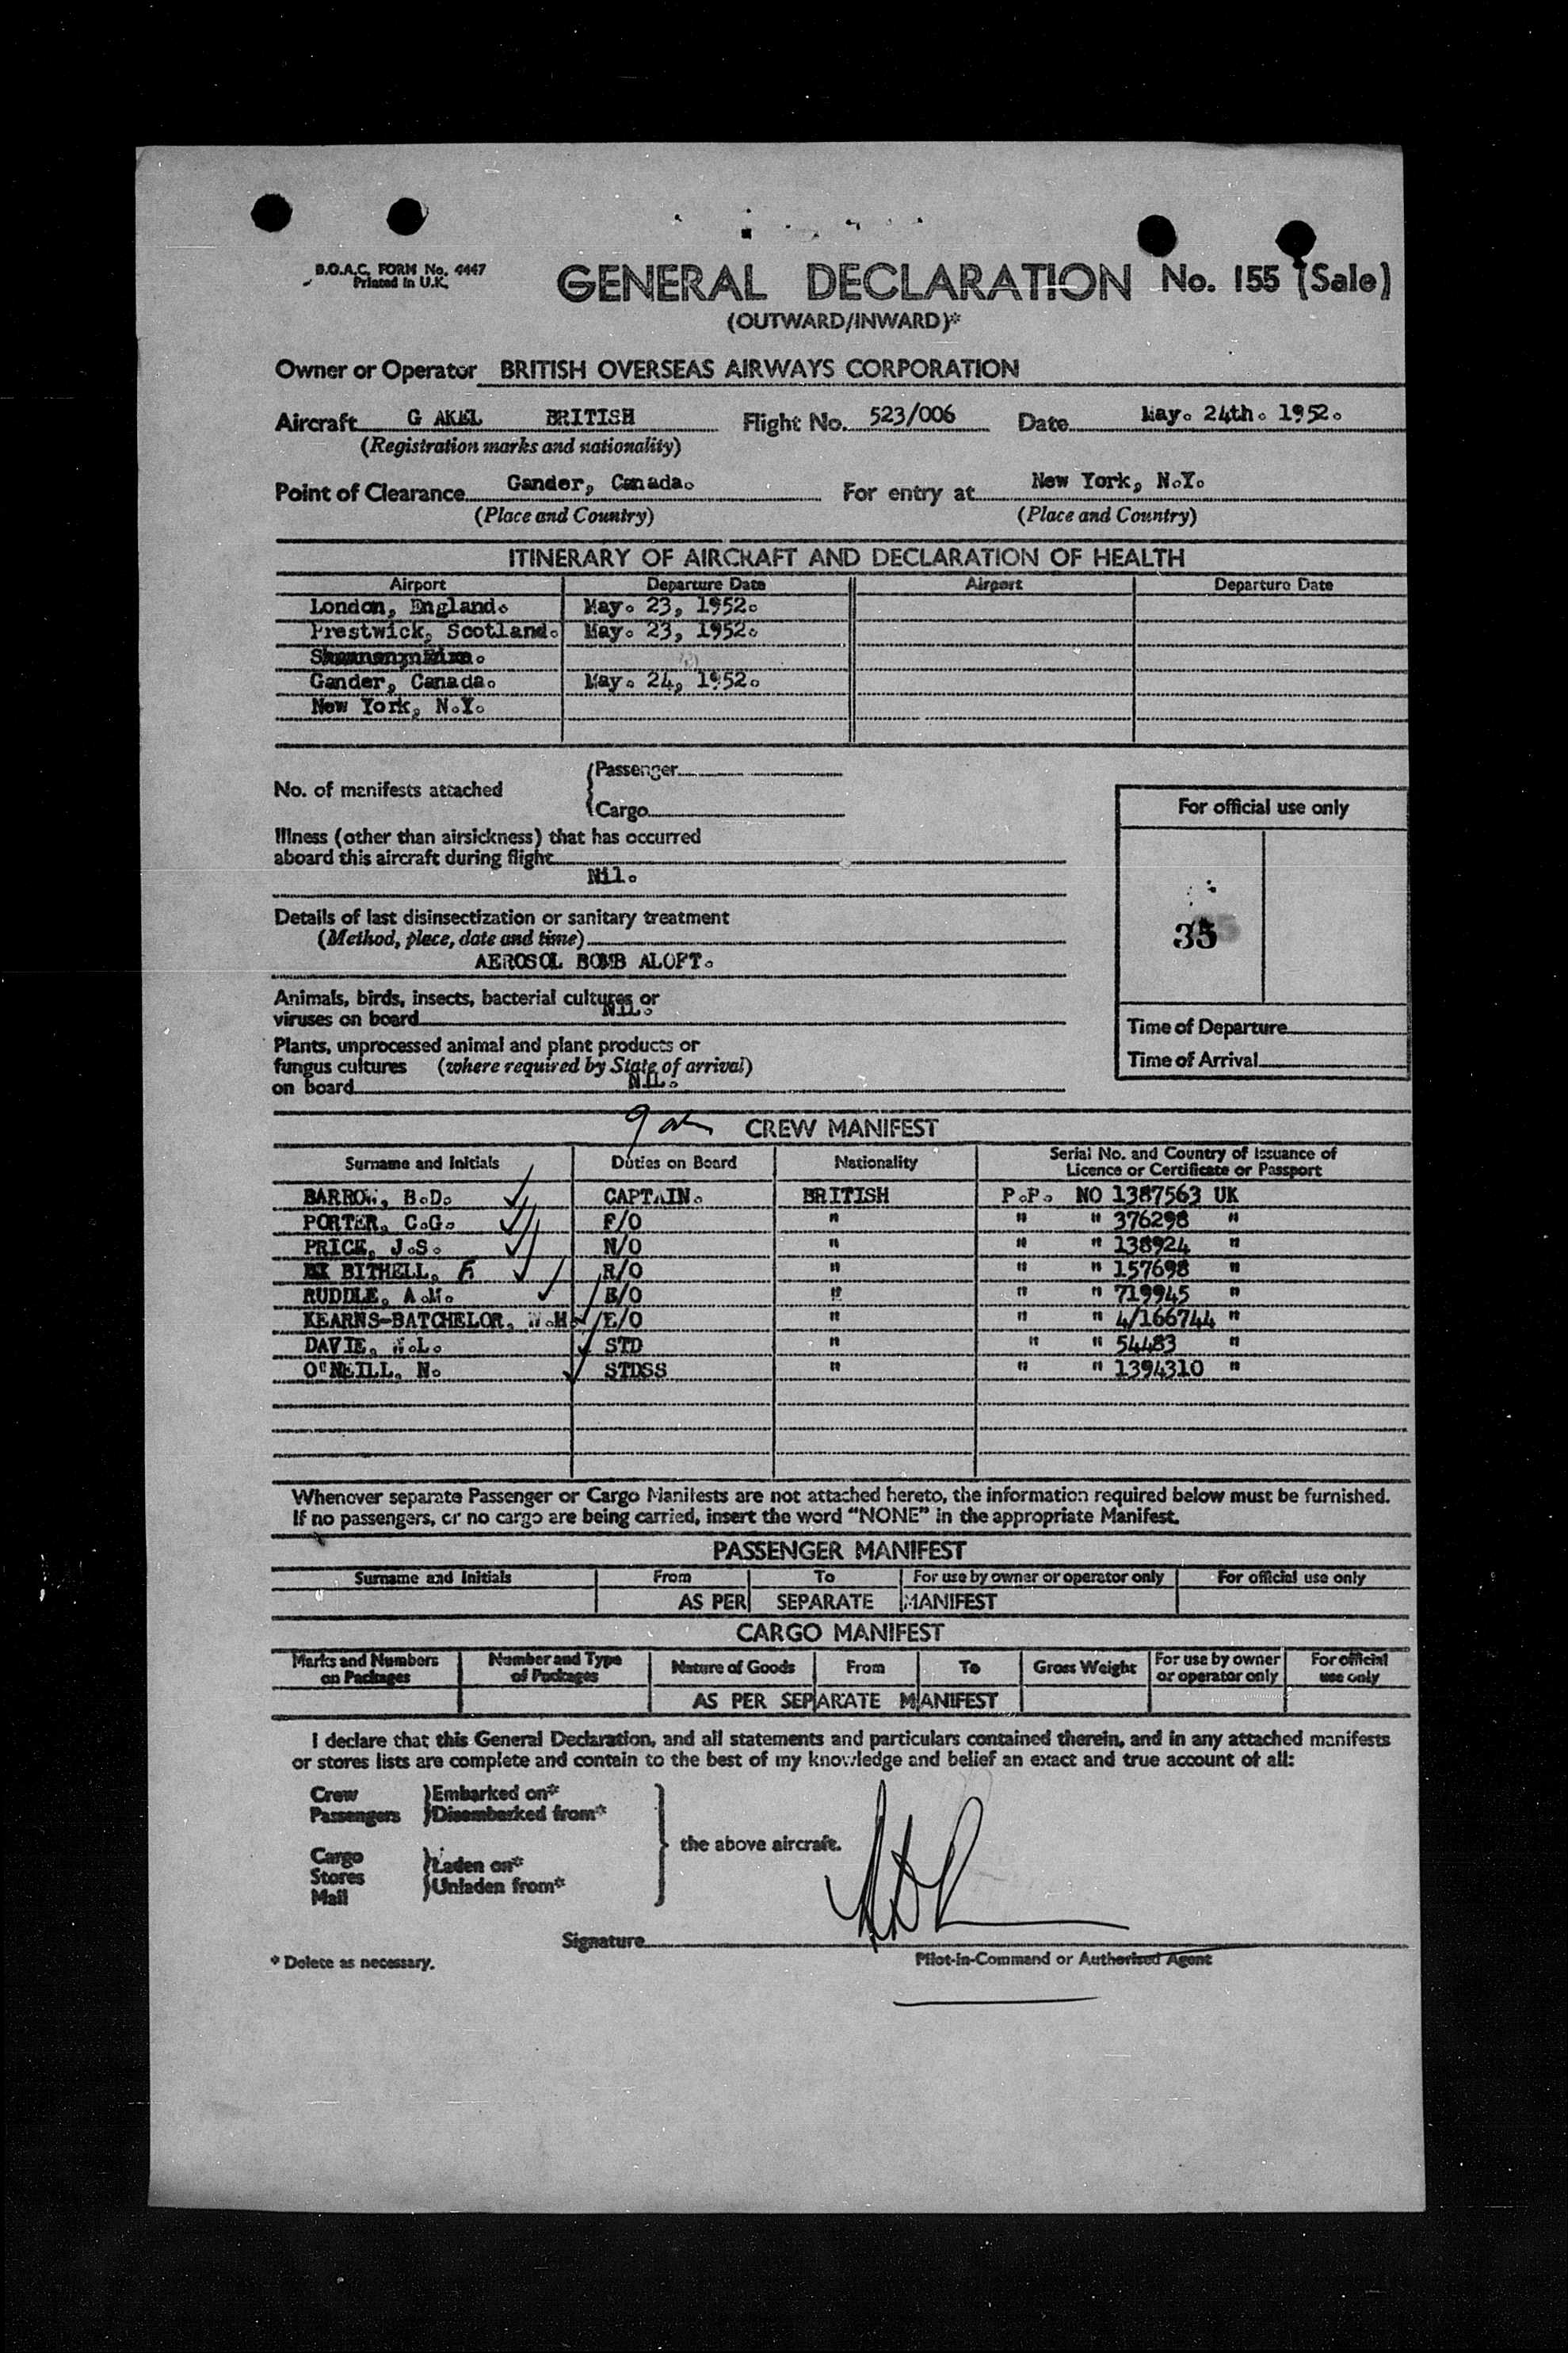 B.O.A.C. FORM No. 4447
Printed in U.K.
GENERAL DECLARATION No. 155 (Sale)
(OUTWARD/INWARD)*
Owner or Operator BRITISH OVERSEAS AIRWAYS CORPORATION
Aircraft G AKEL BRITISH Flight No. 523/006 Date May. 24th. 1952.
(Registration marks and nationality)
Point of Clearance Gander, Canada. For entry at New York, N.Y.
(Place and Country) (Place and Country)
ITINERARY OF AIRCRAFT AND DECLARATION OF HEALTH
Airport Departure Date Airport Departure Date
London, England. May. 23, 1952.
Prestwick, Scotland. May. 23, 1952.
Gander, Canada. May. 24, 1952.
New York, N.Y.
No. of manifests attached { Passenger
{ Cargo
Illness (other than airsickness) that has occurred
aboard this aircraft during flight
Nil.
Details of last disinsectization or sanitary treatment
(Method, place, date and time)
AEROSOL BOMB ALOFT.
Animals, birds, insects, bacterial cultures or
viruses on board NIL.
Plants, unprocessed animal and plant products or
fungus cultures (where required by State of arrival)
on board NIL.
For official use only
35
Time of Departure
Time of Arrival
CREW MANIFEST
Surname and Initials Duties on Board Nationality Serial No. and Country of Issuance of
Licence or Certificate or Passport
BARROW, B.D. CAPTAIN. BRITISH P.P. NO 1387563 UK
PORTER, C.G. F/O " " " 376298 "
PRICE, J.S. N/O " " " 138924 "
BITHELL, F. R/O " " " 157698 "
RUDDLE, A.M. E/O " " " 719945 "
KEARNS-BATCHELOR, W.H. E/O " " " 4/166744 "
DAVIE, W.L. STD " " " 54483 "
O'NEILL, N. STDSS " " " 1394310 "
Whenever separate Passenger or Cargo Manifests are not attached hereto, the information required below must be furnished.
If no passengers, or no cargo are being carried, insert the word "NONE" in the appropriate Manifest.
PASSENGER MANIFEST
Surname and Initials From To For use by owner or operator only For official use only
AS PER SEPARATE MANIFEST
CARGO MANIFEST
Marks and Numbers on Packages Number and Type of Packages Nature of Goods From To Gross Weight For use by owner or operator only For official use only
AS PER SEPARATE MANIFEST
I declare that this General Declaration, and all statements and particulars contained therein, and in any attached manifests
or stores lists are complete and contain to the best of my knowledge and belief an exact and true account of all:
Crew } Embarked on*
Passengers } Disembarked from*
the above aircraft.
Cargo
Stores } Laden on*
Mail } Unladen from*
Signature
* Delete as necessary. Pilot-in-Command or Authorised Agent